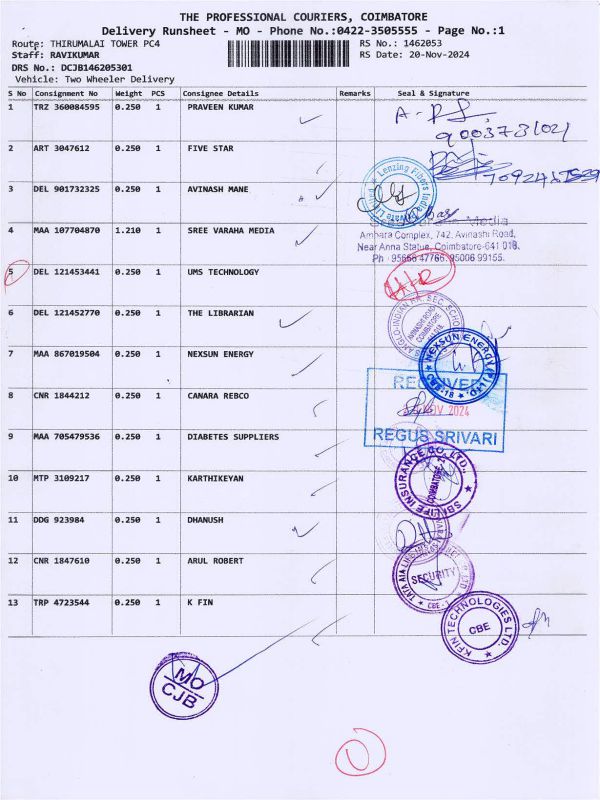 THE PROFESSIONAL COURIERS, COIMBATORE
Delivery Runsheet - MO - Phone No.:0422-3505555 - Page No.:1
Route: THIRUMALAI TOWER PC4
RS No.: 1462053
Staff: RAVIKUMAR
RS Date: 20-Nov-2024
DRS No.: DCJB146205301
Vehicle: Two Wheeler Delivery
S No Consignment No Weight PCS Consignee Details Remarks Seal & Signature
1 TRZ 360084595 0.250 1 PRAVEEN KUMAR
2 ART 3047612 0.250 1 FIVE STAR
3 DEL 901732325 0.250 1 AVINASH MANE
Lenzing Fibers India Private Limited
4 MAA 107704870 1.210 1 SREE VARAHA MEDIA
Media
Ambara Complex, 742, Avinashi Road,
Near Anna Statue, Coimbatore-641 018.
Ph : 95666 47766, 95006 99155.
5 DEL 121453441 0.250 1 UMS TECHNOLOGY
6 DEL 121452770 0.250 1 THE LIBRARIAN
ANGLO-INDIAN HR. SEC. SCHOOL
AVINASHI ROAD
COIMBATORE
7 MAA 867019504 0.250 1 NEXSUN ENERGY
NEXSUN ENERGY (P) LTD.
8 CNR 1844212 0.250 1 CANARA REBCO
RECEIVED
NOV 2024
REGUS SRIVARI
9 MAA 705479536 0.250 1 DIABETES SUPPLIERS
SBI LIFE INSURANCE CO. LTD.,
COIMBATORE
10 MTP 3109217 0.250 1 KARTHIKEYAN
11 DDG 923984 0.250 1 DHANUSH
12 CNR 1847610 0.250 1 ARUL ROBERT
TATA AIA LIFE
SECURITY
CBE - 1
13 TRP 4723544 0.250 1 K FIN
KFIN TECHNOLOGIES LTD.
CBE
MO
CJB